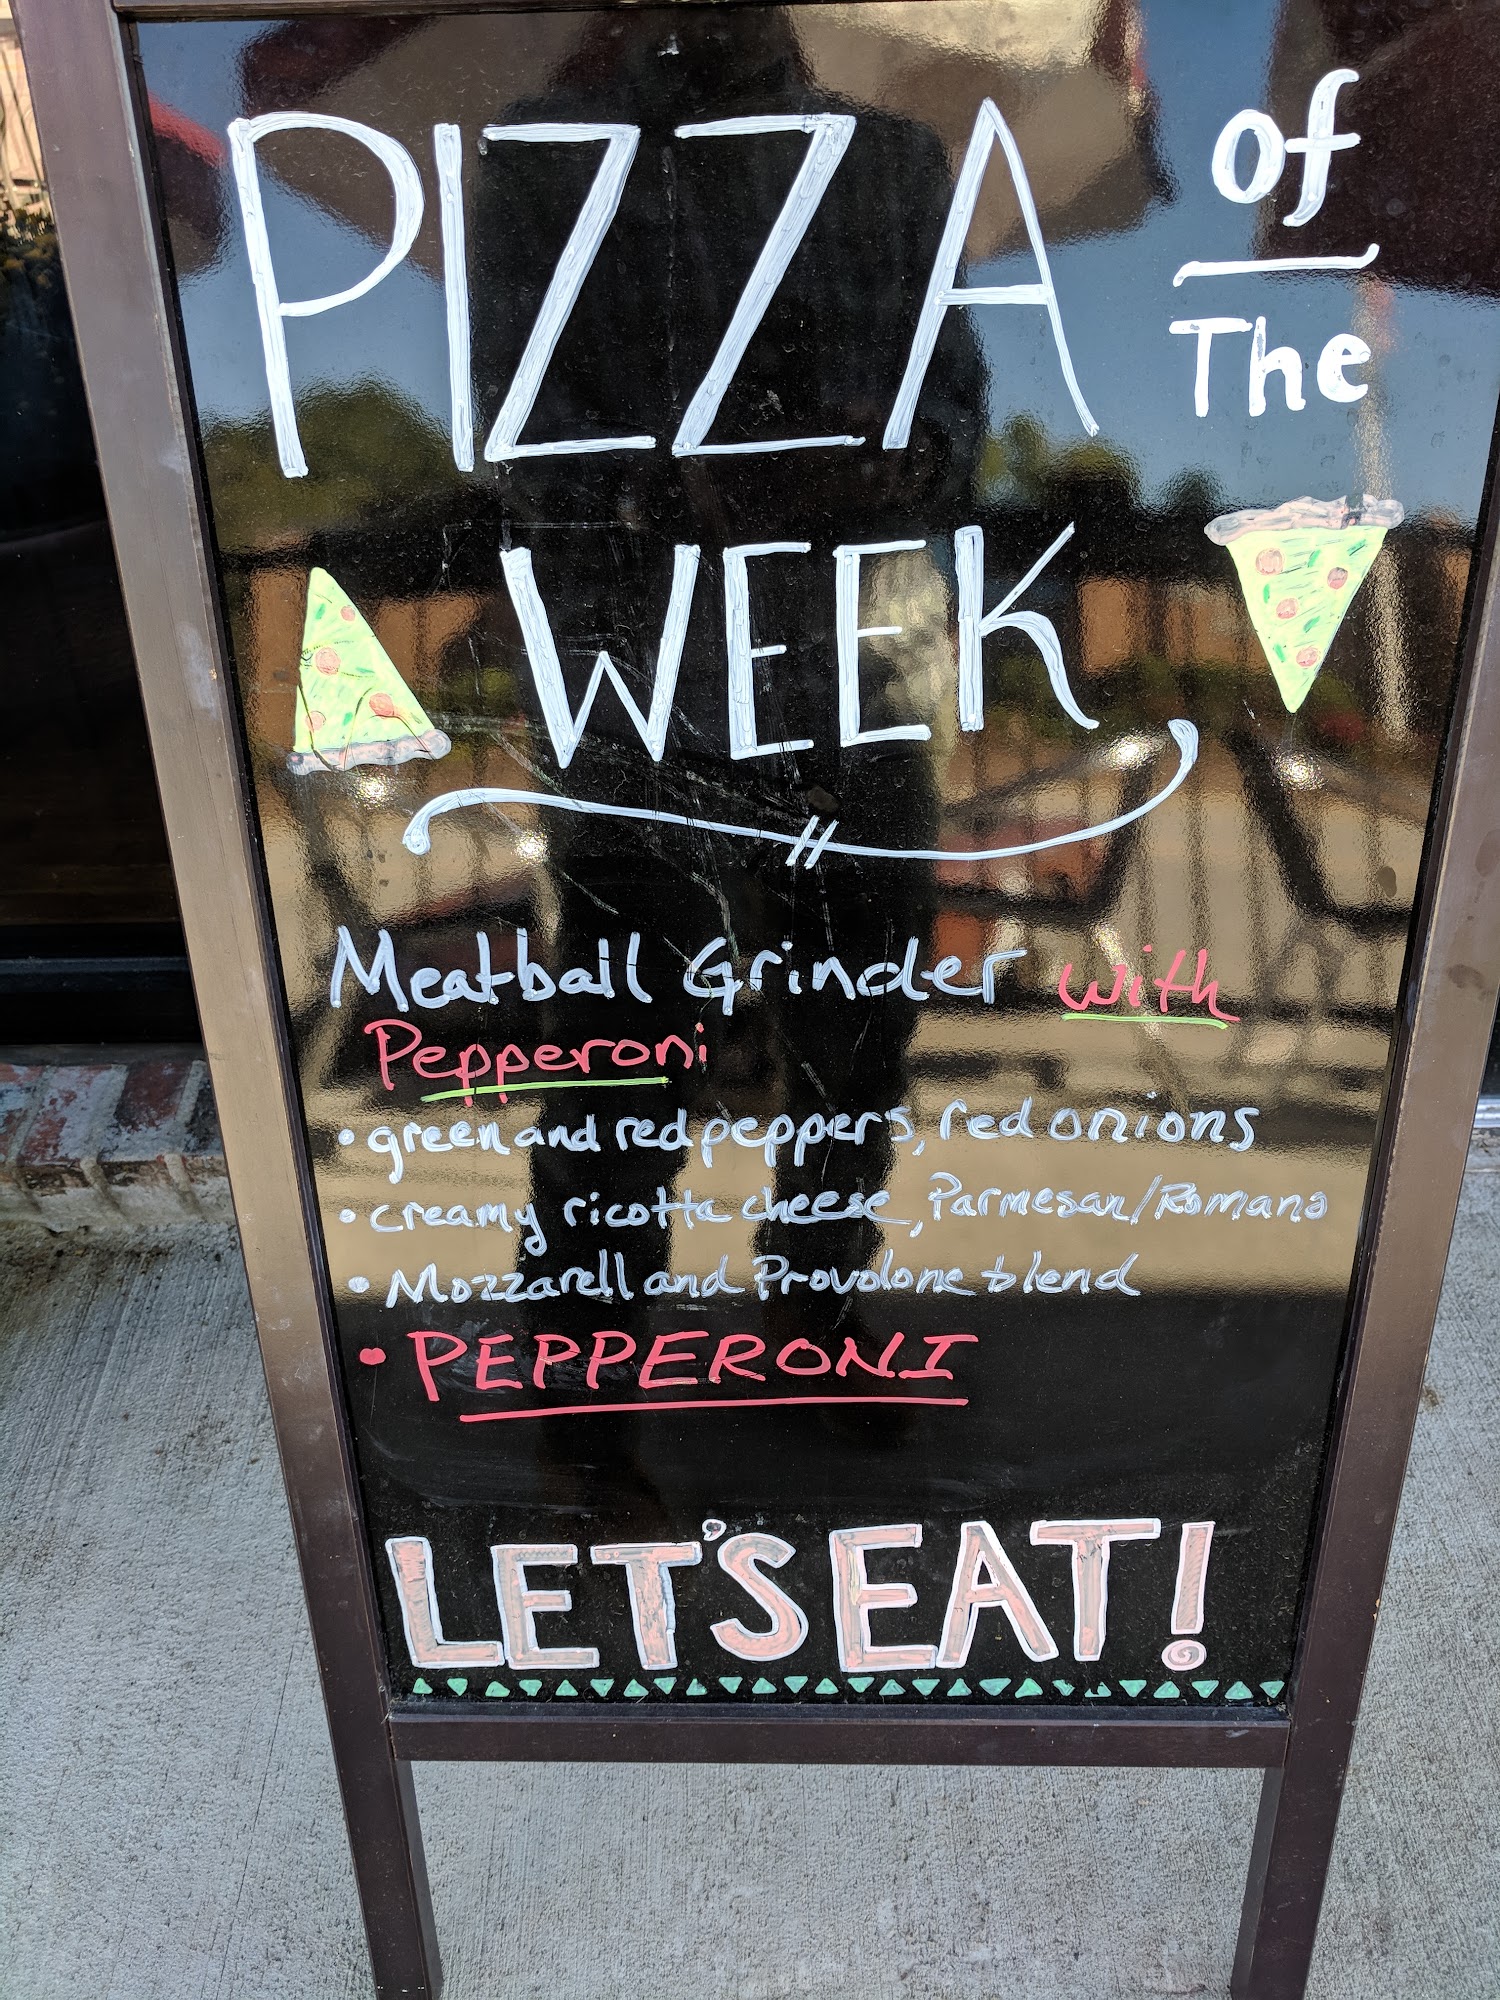 PIZZA of
The
WEEK
Meatball Grinder with
Pepperoni
• green and red peppers, red onions
• creamy ricotta cheese, Parmesan/Romano
• Mozzarell and Provolone blend
• PEPPERONI
LET'S EAT!